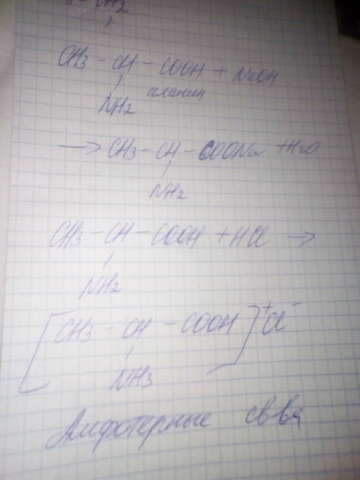 CH3 - CH - COOH + NaOH
NH2 аланин
→ CH3 - CH - COONa + H2O
NH2
CH3 - CH - COOH + HCl →
NH2
[CH3 - CH - COOH]⁺Cl⁻
NH3
Амфотерные св-ва